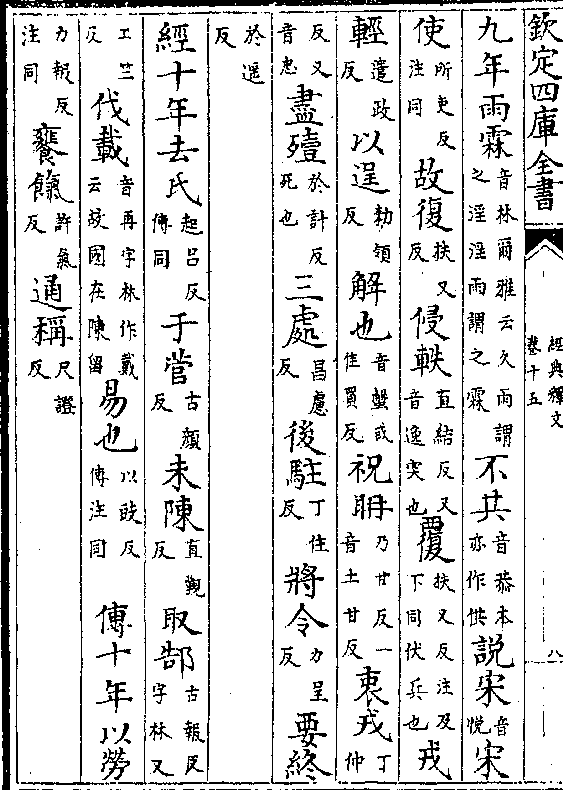 欽定四庫全書
經典釋文
卷十五
八
九年雨霖音林爾雅云久雨謂之淫淫雨謂之霖不共音恭本亦作供說宋音悅宋
使所吏反注同故復扶又反侵軼直結反又音逸突也覆扶又反注及下同伏兵也戎
輕遣政反以逞勅領反解也音蟹或佳買反祝耼乃甘反一音土甘反衷戎丁仲
反又音忠盡殪於計反死也三處昌慮反後駐丁住反將令力呈反要終
於遥反
經十年去氏起呂反傳同于菅古顔反未陳直覲反取郜古報反字林又
工竺反伐載音再字林作戴云故國在陳留易也以豉反傳注同傳十年以勞
力報反注同饔餼許氣反通稱尺證反